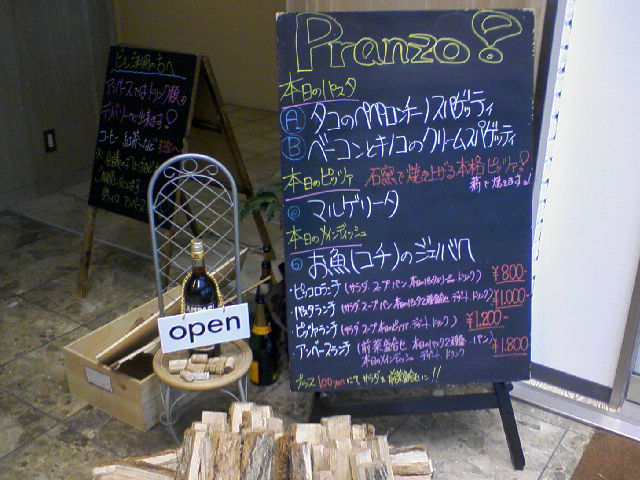 Pranzo!
本日のパスタ
A タコのペペロンチーノスパゲッティ
B ベーコンとキノコのクリームスパゲッティ
本日のピッツァ 石窯で焼き上げる本格ピッツァ!
薪で焼きます!
マルゲリータ
本日のメインディッシュ
お魚(コチ)のジェノバ风
・ピッコロランチ (サラダ スープ パン ドリンク) ¥800-
・パスタランチ (サラダ スープ パン 本日のパスタ デザート ドリンク) ¥1,000-
・ピッツァランチ (サラダ スープ 本日のピッツァ デザート ドリンク) ¥1,200-
・アンベースランチ (前菜盛合せ 本日のパスタ パン ¥1,800-
本日のメインディッシュ デザート ドリンク
プラス100yenにてサラダを前菜盛合せに!!
ビルご利用の方へ
アンベースではドリンク類の
デリバリーも出来ます!
コーヒー 紅茶
open